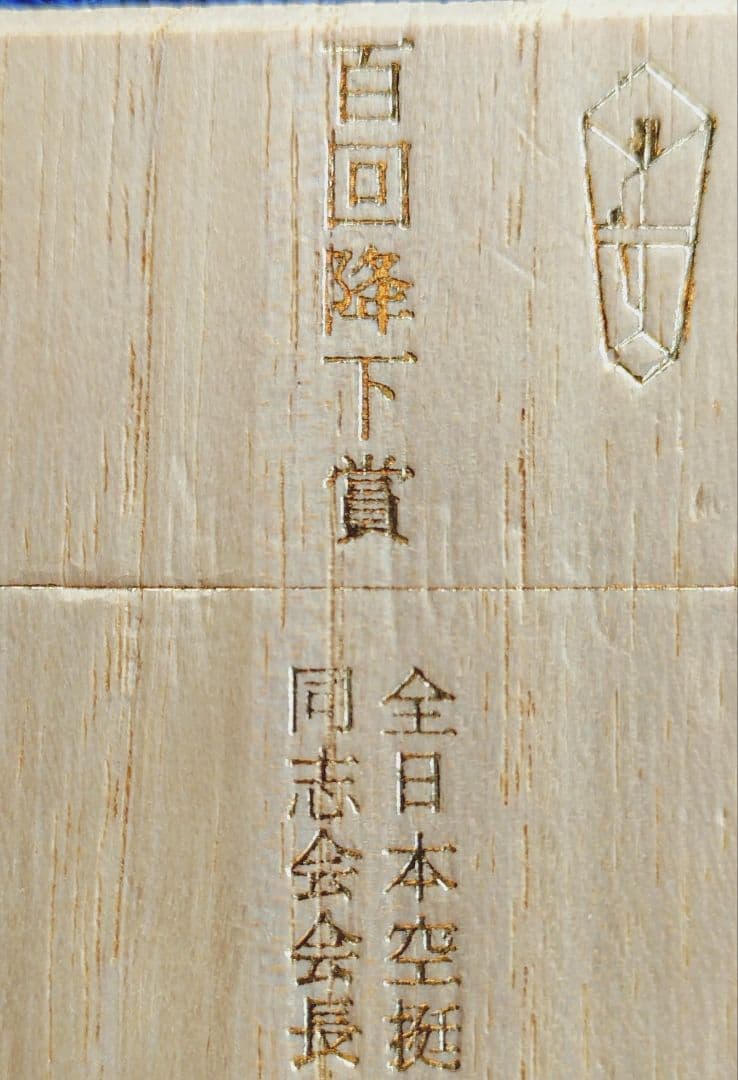 百回降下賞
全日本空挺
同志会会長